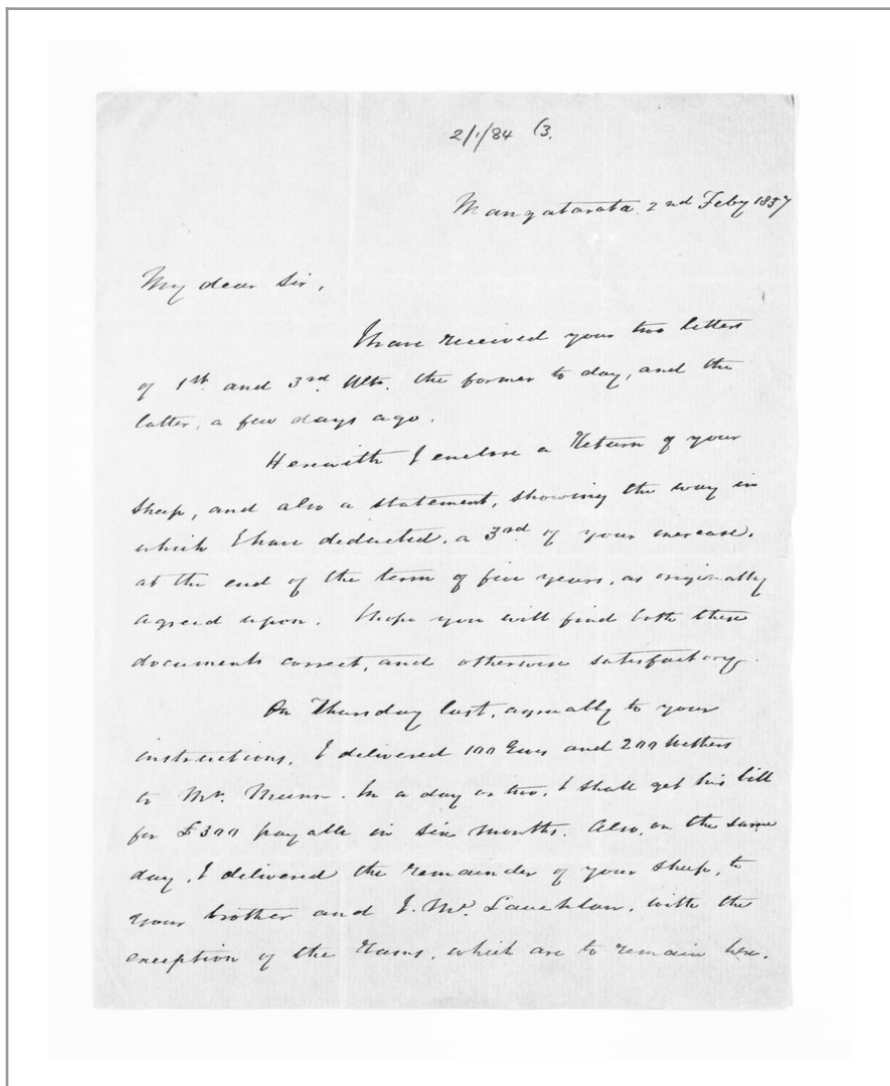 2/1/84 (3.
Mangatarata 2nd Feby 1857
My dear Sir,
I have received your two letters
of 1st and 3rd Ulto. the former to day, and the
latter, a few days ago.
Herewith I enclose a Return of your
sheep, and also a statement, showing the way in
which I have deducted, a 3rd of your increase,
at the end of the term of five years, as originally
agreed upon. I hope you will find both these
documents correct, and otherwise satisfactory.
On Thursday last, agreeably to your
instructions, I delivered 100 Ewes and 200 Wethers
to Mr. Munn. In a day or two, I shall get his bill
for £300 payable in six months. Also, on the same
day, I delivered the remainder of your sheep, to
your brother and J. McLauchlan, with the
exception of the Rams, which are to remain here.